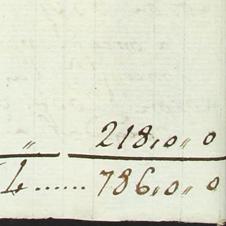 〃 218,0〃 0
L ...... 786,0〃 0